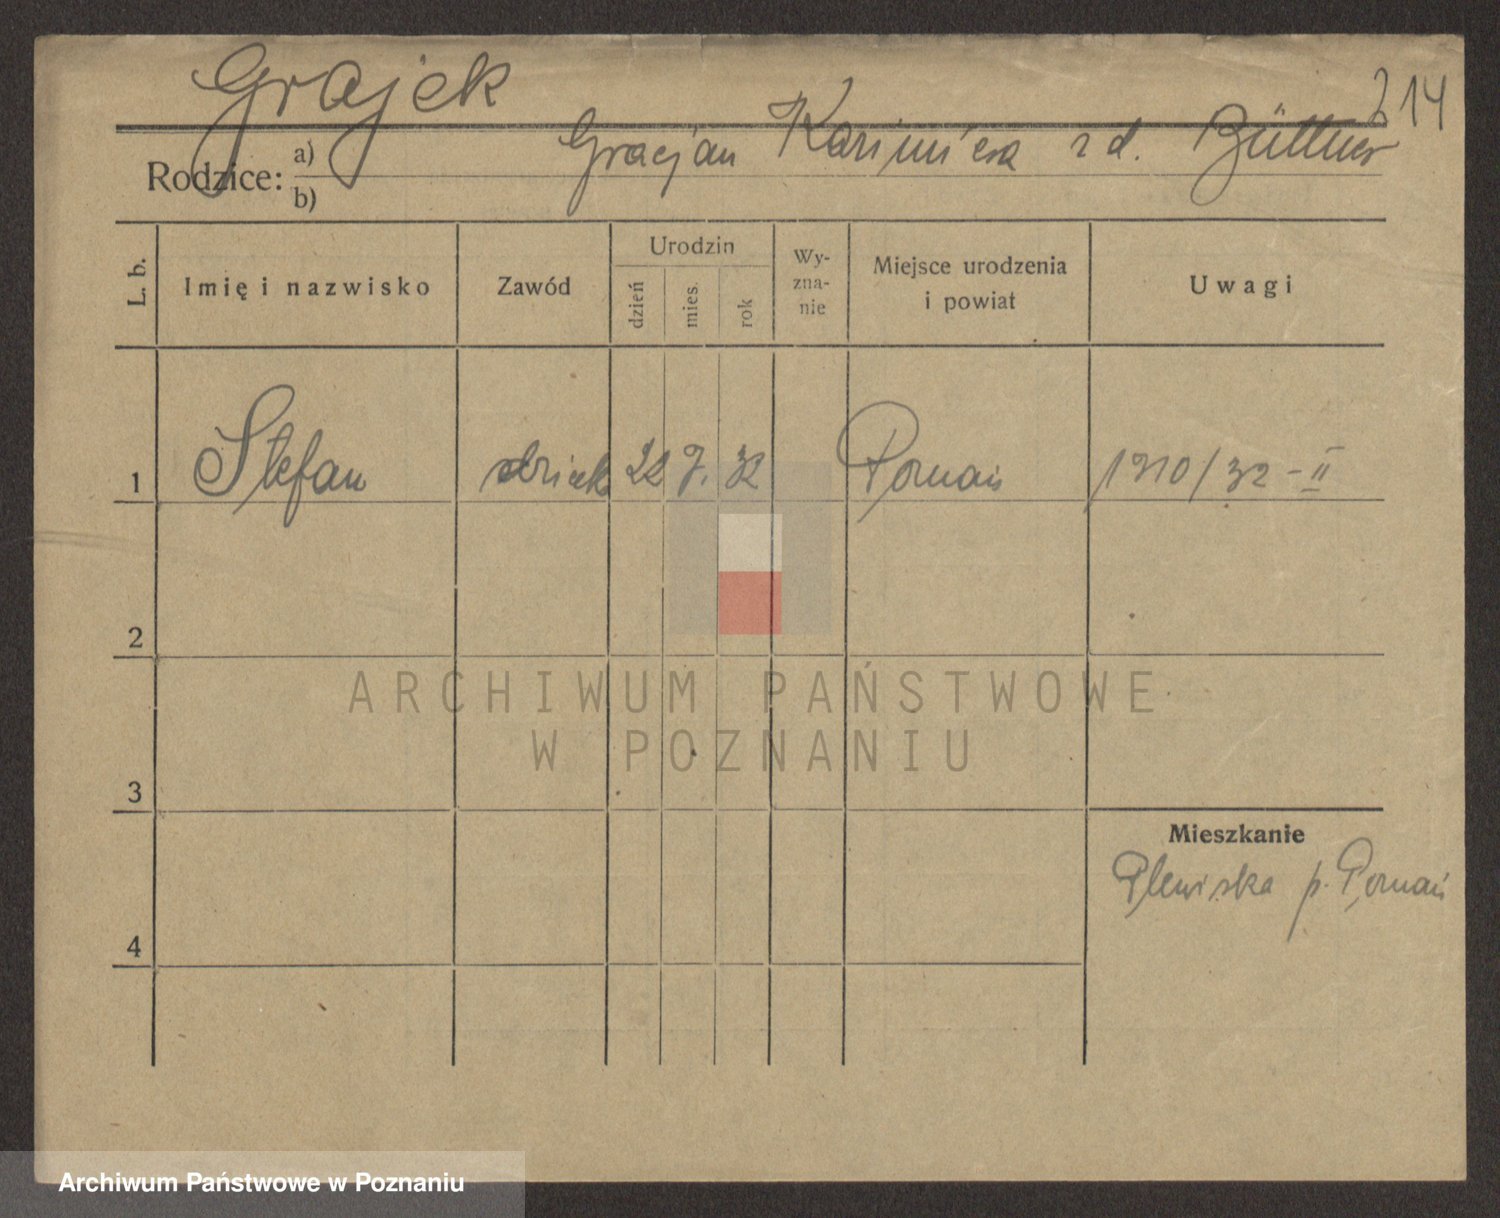 Grajek
214
Gracjan Kazimiera z d. Büttner
Rodzice: a)
b)
L. b.
Imię i nazwisko
Zawód
Urodzin
dzień
mies.
rok
Wy-
zna-
nie
Miejsce urodzenia
i powiat
Uwagi
1 Stefan dziecko 22 7. 32 Poznań 1910/32-II
2
ARCHIWUM PAŃSTWOWE
W POZNANIU
3
Mieszkanie
Plewiska p. Poznań
4
Archiwum Państwowe w Poznaniu